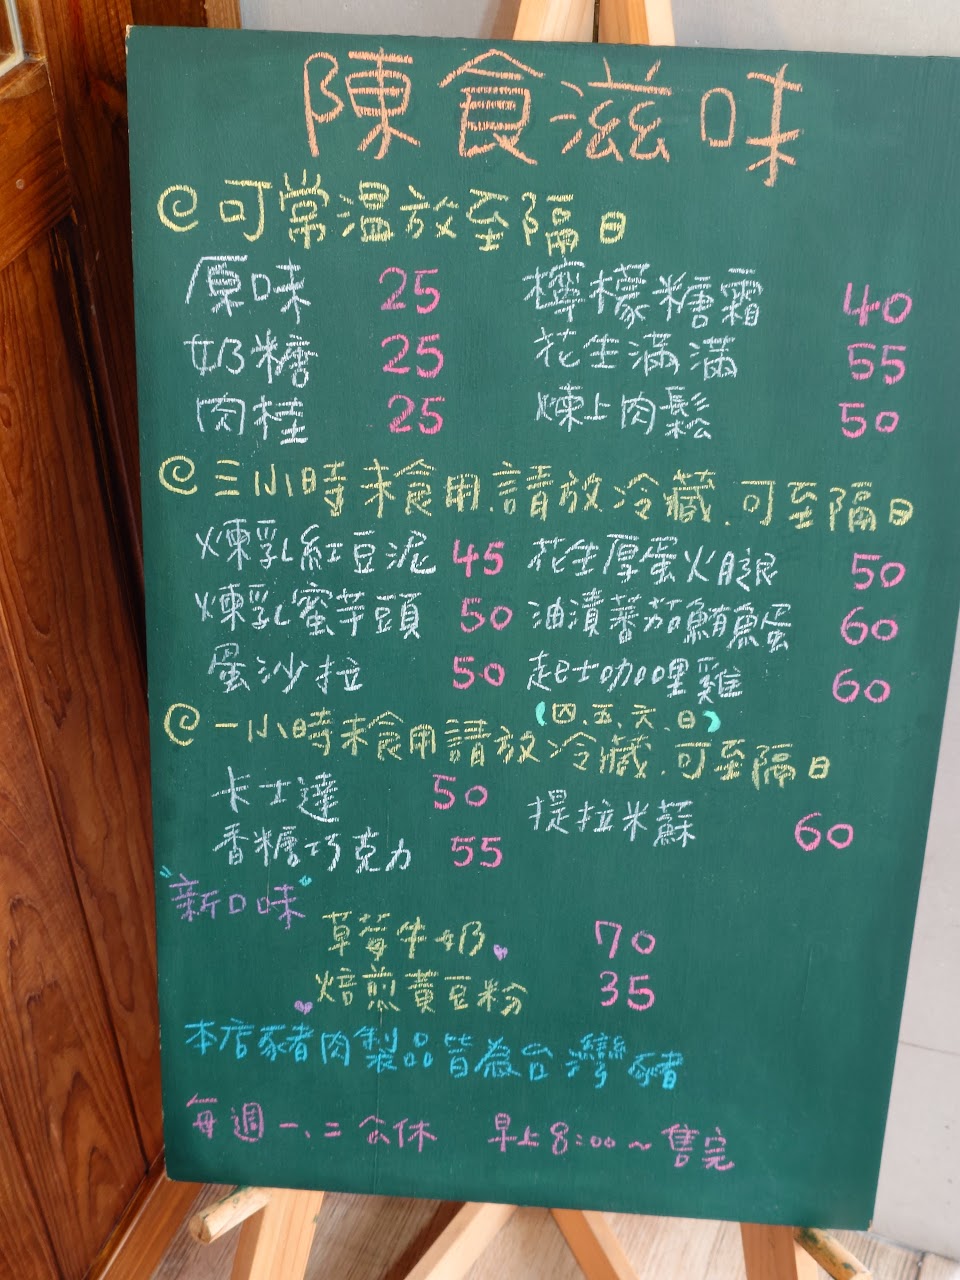 陳食滋味
可常溫放至隔日
原味 25 檸檬糖霜 40
奶糖 25 花生滿滿 55
肉桂 25 煉上肉鬆 50
三小時未食用.請放冷藏.可至隔日
煉乳紅豆泥 45 花生厚蛋火腿 50
煉乳蜜芋頭 50 油漬蕃茄鮪魚蛋 60
蛋沙拉 50 起士咖哩雞 60
(四.五.六.日)
一小時未食用請放冷藏.可至隔日
卡士達 50 提拉米蘇 60
香糖巧克力 55
"新口味"
草莓牛奶 70
焙煎黃豆粉 35
本店豬肉製品皆為台灣豬
每週一、二公休 早上8:00~售完